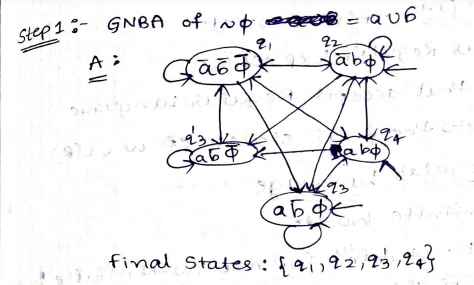 Step 1 :- GNBA of ~φ = a∪b
A :
q1
q2
a̅ b̅ φ̅
a̅ b φ
q'3
q4
a b̅ φ̅
a b φ
q3
a b̅ φ
final States : {q1, q2, q3', q4}